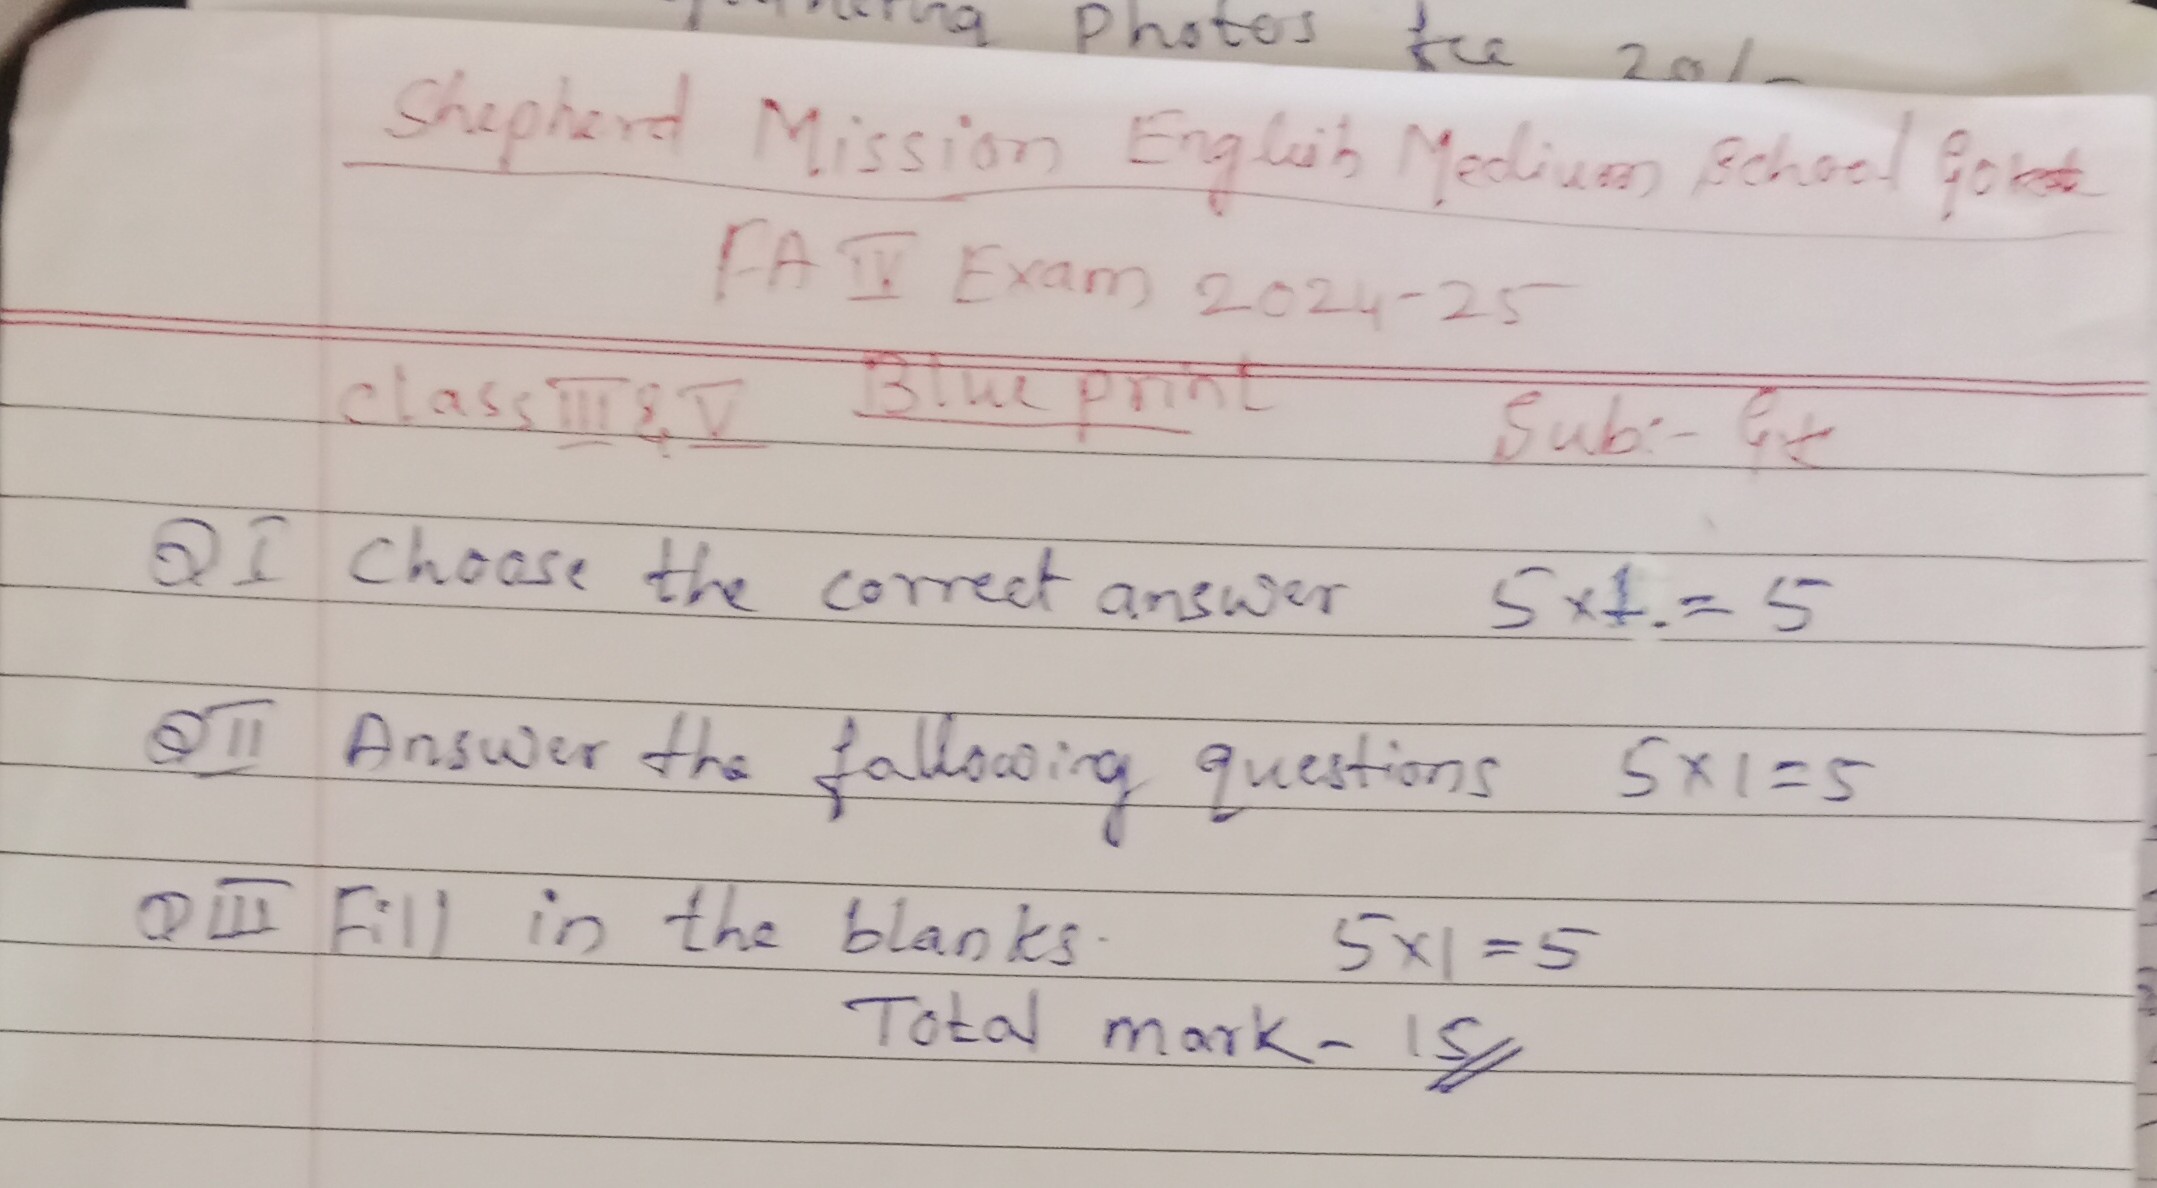 photos fee 20/-
Shepherd Mission English Medium School
FA IV Exam 2024-25
class III & V Blue print Sub:- Gk
QI Choose the correct answer 5x1.=5
QII Answer the following questions 5x1=5
QIII Fill in the blanks. 5x1=5
Total mark - 15